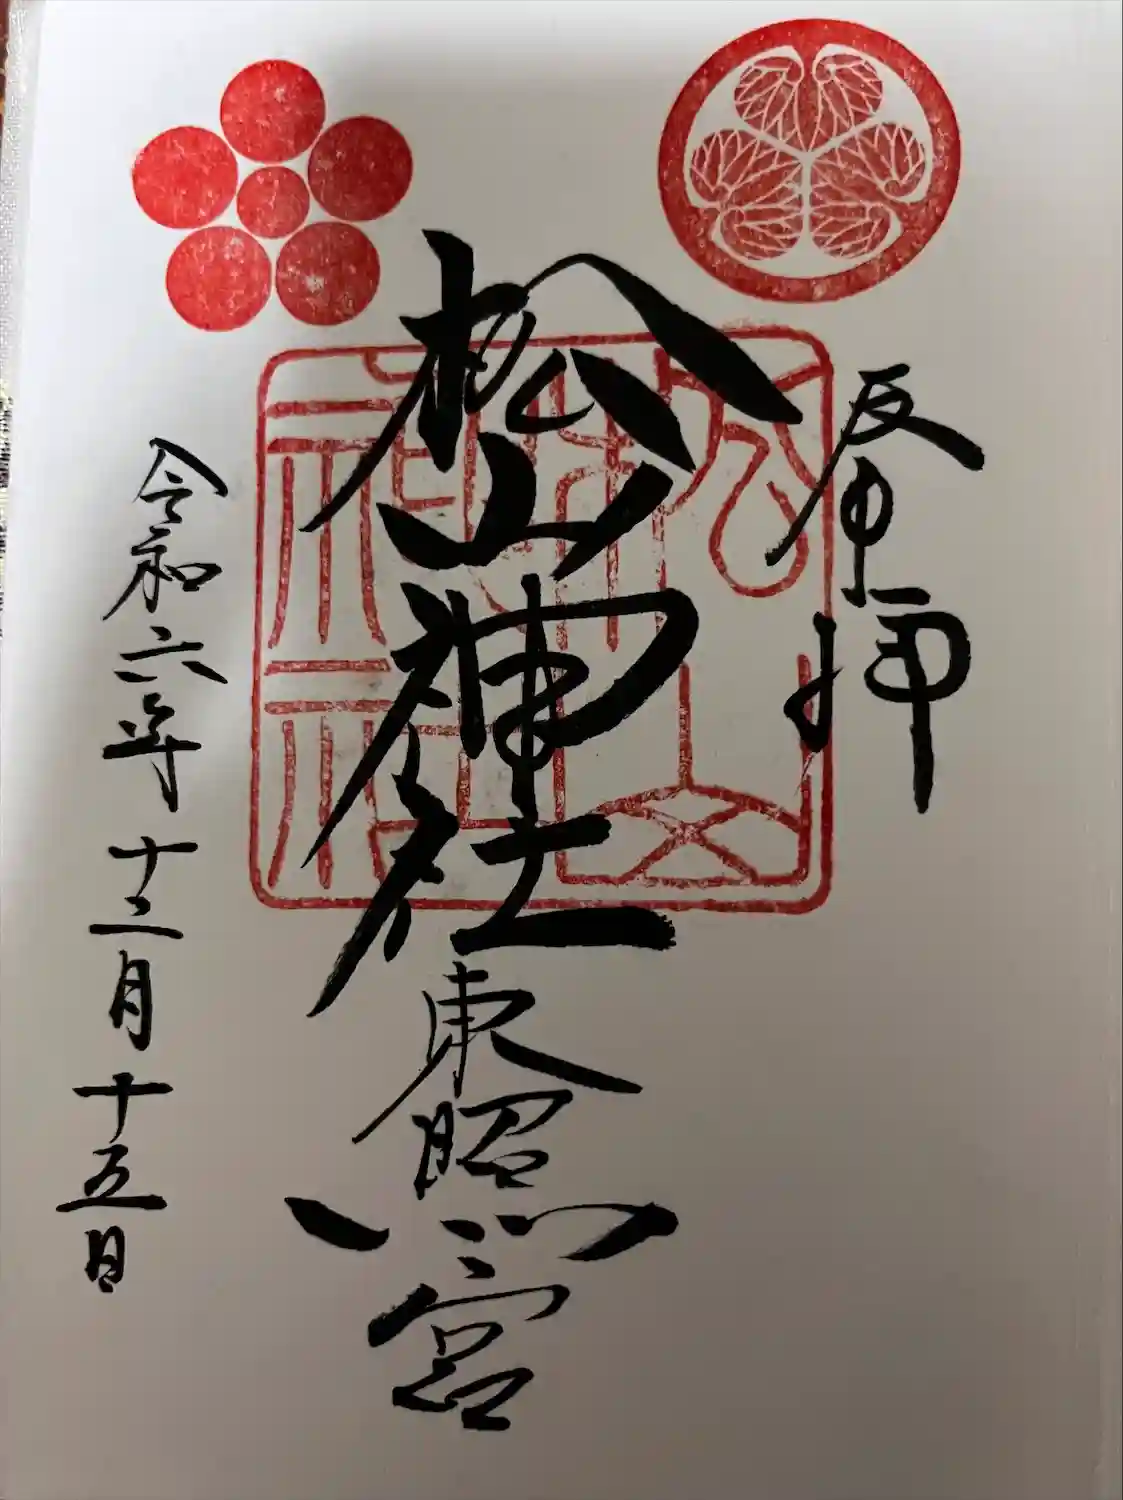 奉拝
松山神社
東照宮
令和六年十二月十五日